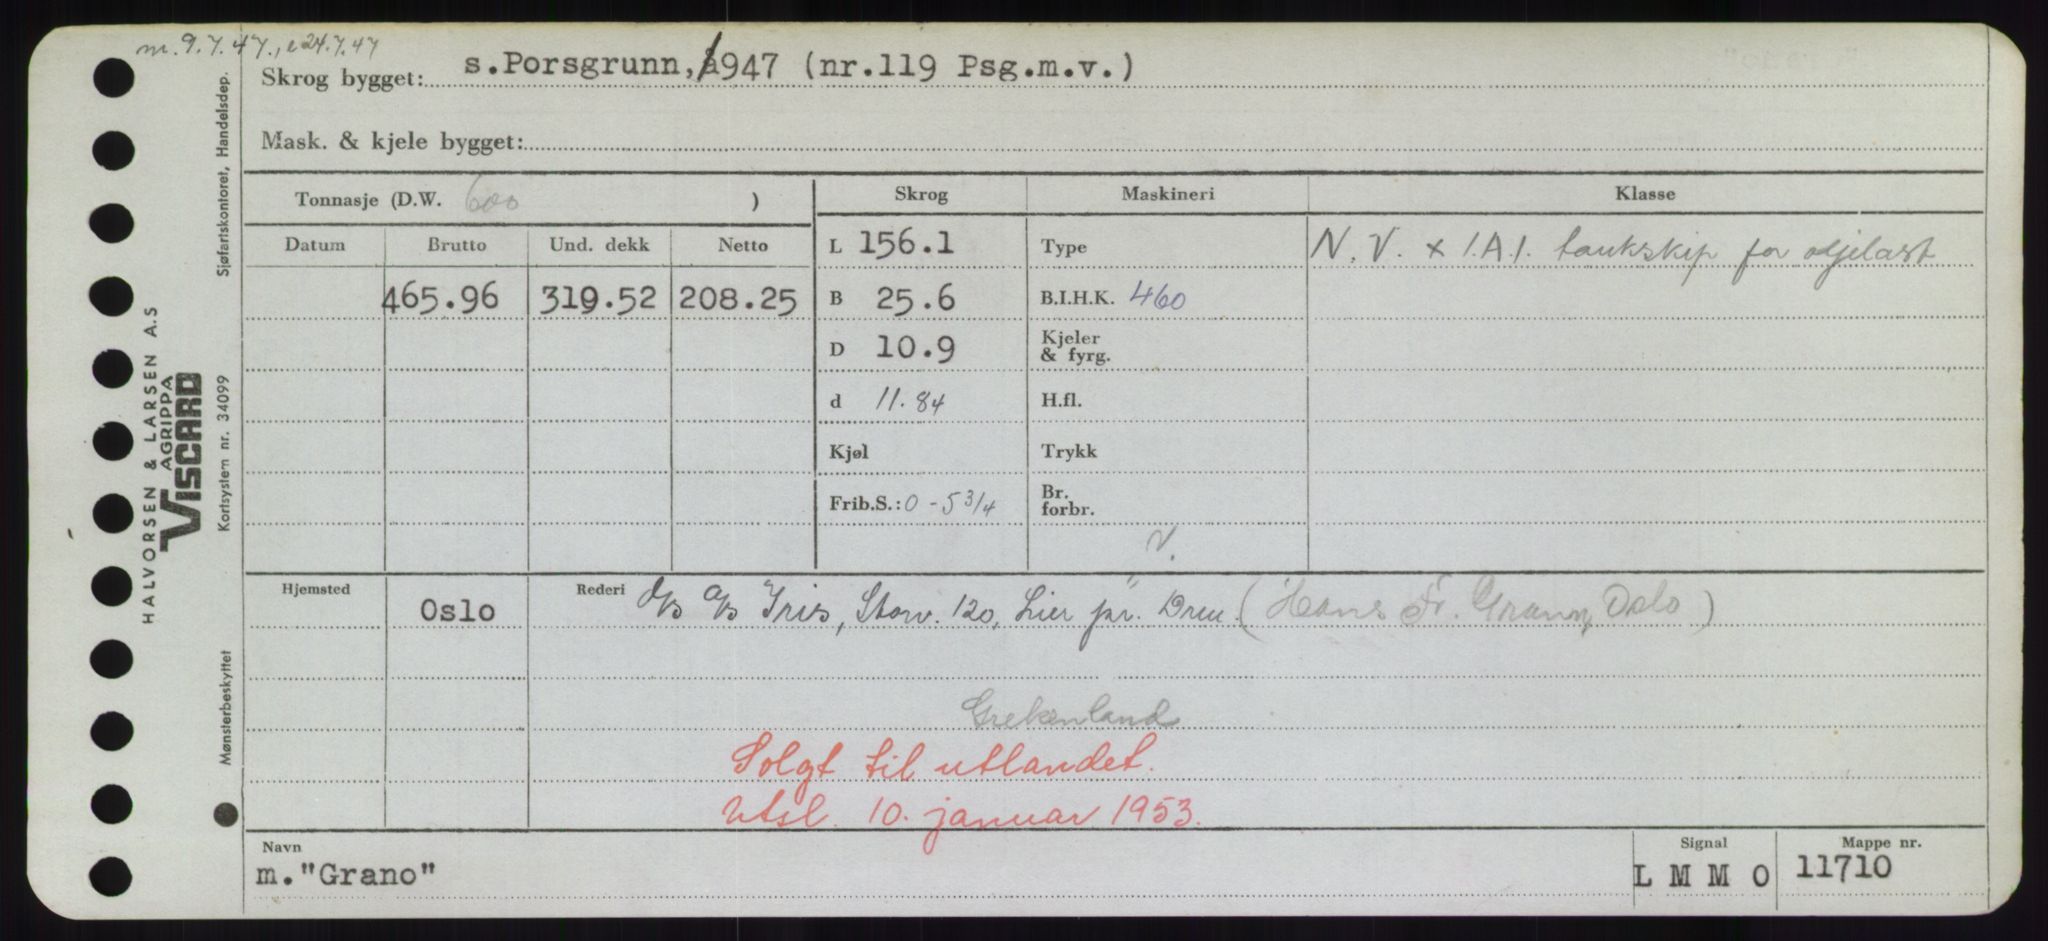 m. 9.7.47., e 24.7.47
Skrog bygget: s.Porsgrunn, 1947 (nr.119 Psg.m.v.)
Mask. & kjele bygget:
Tonnasje (D.W. 600 )
Skrog Maskineri Klasse
Datum Brutto Und. dekk Netto
L 156.1 Type N.V. + 1.A.1. tankskip for oljelast
465.96 319.52 208.25 B 25.6 B.I.H.K. 460
D 10.9 Kjeler & fyrg.
d 11.84 H.fl.
Kjøl Trykk
Frib.S.: 0 - 5 3/4 Br. forbr.
V.
Hjemsted Oslo Rederi Iris, Stow. 120, Lier pr. Drm. (Hans Fr. Grann, Oslo)
Grekenland
Solgt til utlandet.
Utsl. 10. januar 1953.
Navn Signal Mappe nr.
m."Grano" L M M O 11710
Sjøfartskontoret, Handelsdep.
Kortsystem nr. 34099
Mønsterbeskyttet
HALVORSEN & LARSEN A.S
AGRIPPA
VISCARD